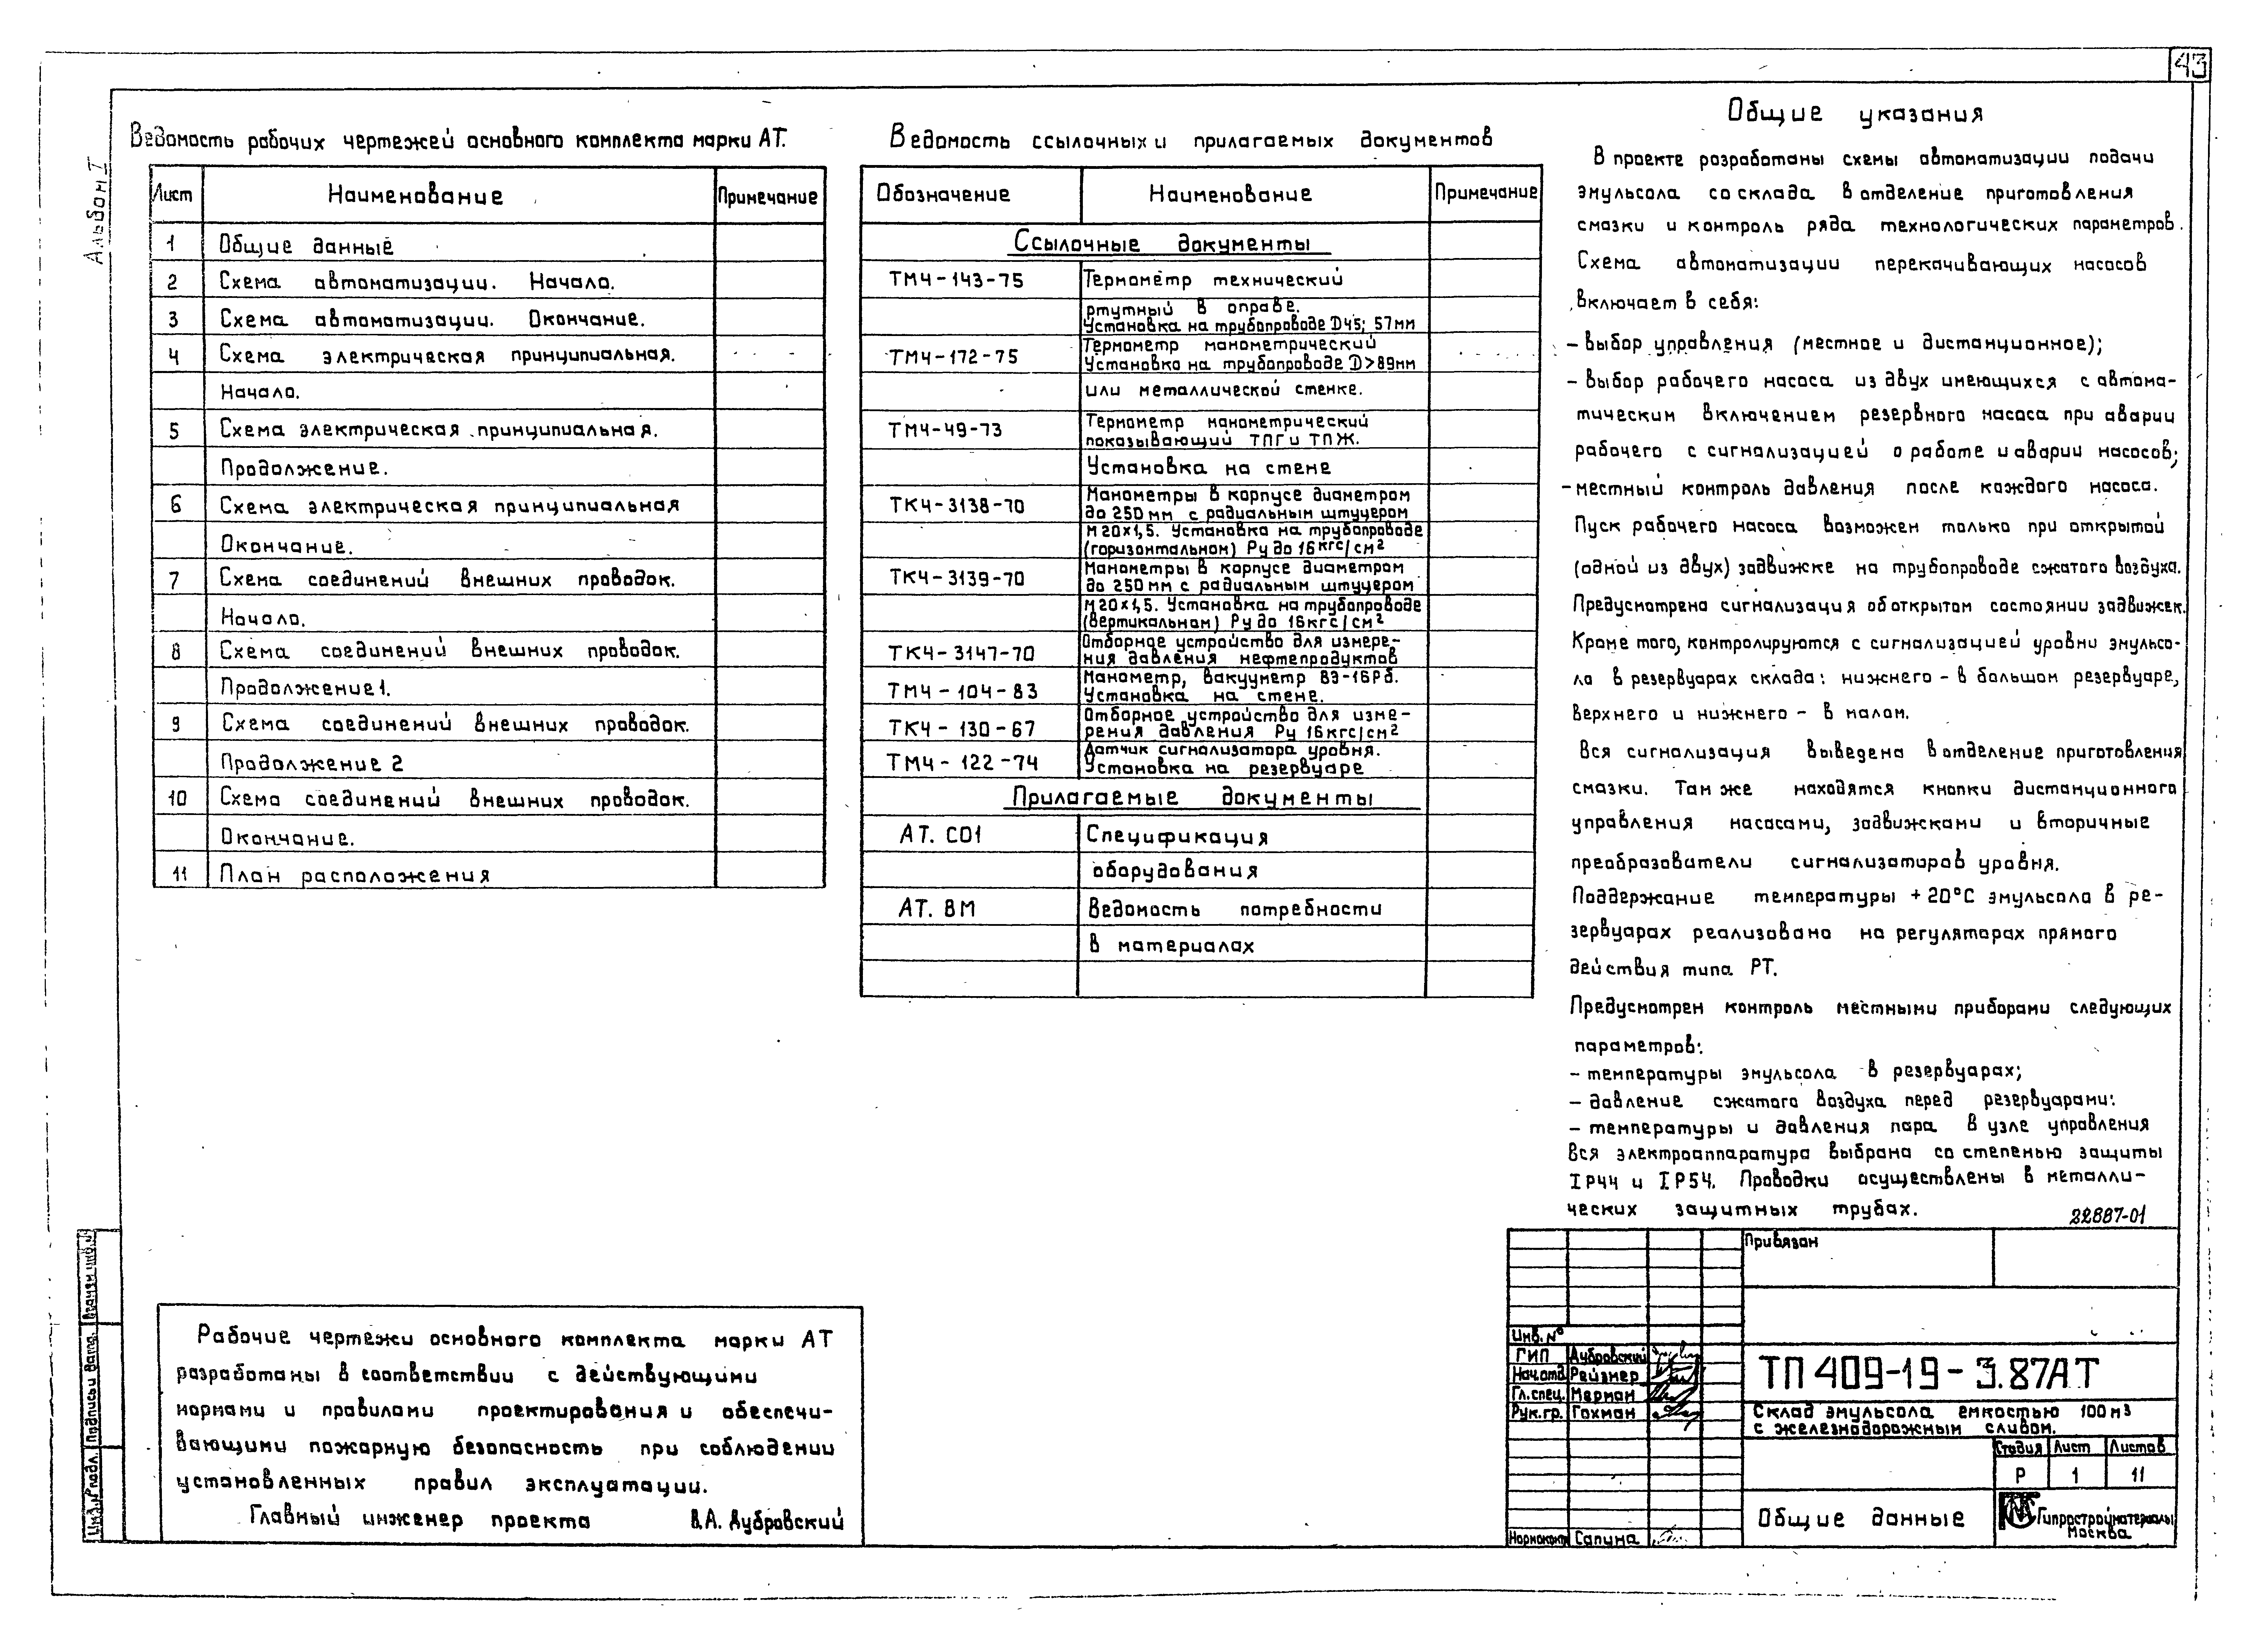 43
Альбом I
Ведомость рабочих чертежей основного комплекта марки АТ.
Лист Наименование Примечание
1 Общие данные
2 Схема автоматизации. Начало.
3 Схема автоматизации. Окончание.
4 Схема электрическая принципиальная.
Начало.
5 Схема электрическая принципиальная.
Продолжение.
6 Схема электрическая принципиальная
Окончание.
7 Схема соединений внешних проводок.
Начало.
8 Схема соединений внешних проводок.
Продолжение 1.
9 Схема соединений внешних проводок.
Продолжение 2
10 Схема соединений внешних проводок.
Окончание.
11 План расположения
Ведомость ссылочных и прилагаемых документов
Обозначение Наименование Примечание
Ссылочные документы
ТМ4-143-75 Термометр технический
ртутный в оправе.
Установка на трубопроводе D45; 57мм
ТМ4-172-75 Термометр манометрический
Установка на трубопроводе D>89мм
или металлической стенке.
ТМ4-49-73 Термометр манометрический
показывающий ТПГ и ТПЖ.
Установка на стене
ТК4-3138-70 Манометры в корпусе диаметром
до 250мм с радиальным штуцером
М20х1,5. Установка на трубопроводе
(горизонтальном) Ру до 16кгс/см2
ТК4-3139-70 Манометры в корпусе диаметром
до 250мм с радиальным штуцером
М20х1,5. Установка на трубопроводе
(вертикальном) Ру до 16кгс/см2
ТК4-3147-70 Отборное устройство для измере-
ния давления нефтепродуктов
ТМ4-104-83 Манометр, вакууметр ВЭ-16Рб.
Установка на стене.
ТК4-130-67 Отборное устройство для изме-
рения давления Ру 16кгс/см2
ТМ4-122-74 Датчик сигнализатора уровня.
Установка на резервуаре
Прилагаемые документы
АТ. СО1 Спецификация
оборудования
АТ. ВМ Ведомость потребности
в материалах
Общие указания
В проекте разработаны схемы автоматизации подачи
эмульсола со склада в отделение приготовления
смазки и контроль ряда технологических параметров.
Схема автоматизации перекачивающих насосов
включает в себя:
- выбор управления (местное и дистанционное);
- выбор рабочего насоса из двух имеющихся с автома-
тическим включением резервного насоса при аварии
рабочего с сигнализацией о работе и аварии насосов;
- местный контроль давления после каждого насоса.
Пуск рабочего насоса возможен только при открытой
(одной из двух) задвижке на трубопроводе сжатого воздуха.
Предусмотрена сигнализация об открытом состоянии задвижек.
Кроме того, контролируются с сигнализацией уровни эмульсо-
ла в резервуарах склада: нижнего - в большом резервуаре,
верхнего и нижнего - в малом.
Вся сигнализация выведена в отделение приготовления
смазки. Там же находятся кнопки дистанционного
управления насосами, задвижками и вторичные
преобразователи сигнализаторов уровня.
Поддержание температуры +20°С эмульсола в ре-
зервуарах реализовано на регуляторах прямого
действия типа РТ.
Предусмотрен контроль местными приборами следующих
параметров:
- температуры эмульсола в резервуарах;
- давление сжатого воздуха перед резервуарами:
- температуры и давления пара в узле управления
Вся электроаппаратура выбрана со степенью защиты
IP44 и IP54. Проводки осуществлены в металли-
ческих защитных трубах.
22887-01
Рабочие чертежи основного комплекта марки АТ
разработаны в соответствии с действующими
нормами и правилами проектирования и обеспечи-
вающими пожарную безопасность при соблюдении
установленных правил эксплуатации.
Главный инженер проекта В.А. Дубровский
Привязан
Инв.№
ГИП Дубровский
Нач.отд. Рейзнер
Гл.спец. Мерман
Рук.гр. Гохман
Нормоконт Сапуна
ТП 409-19-3.87АТ
Склад эмульсола емкостью 100м3
с железнодорожным сливом.
Стадия Лист Листов
Р 1 11
Общие данные
Гипростройматериалы
Москва
Инв.№подл. Подпись и дата. Взамен инв.№